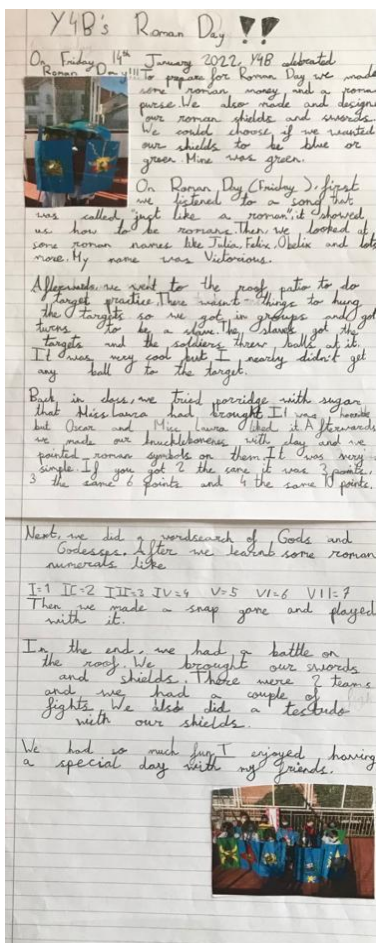 Y4B's Roman Day !!
On Friday 14th January 2022, Y4B celebrated
Roman Day!!! To prepare for Roman Day we made
some roman money and a roman
purse. We also made and designe
our roman shields and swords.
We could choose if we wanted
our shields to be blue or
green. Mine was green.
On Roman Day (Friday), first
we listened to a song that
was called "just like a roman", it showed
us how to be romans. Then, we looked at
some roman names like Julia, Felix, Obelix and lots
more. My name was Victorious.
Afterwards, we went to the roof patio to do
target practice. There wasn't things to hung
the targets so we got in groups and got
turns to be a slave. The slaves got the
targets and the soldiers threw balls at it.
It was very cool but I nearly didn't get
any ball to the target.
Back in class, we tried porridge with sugar
that Miss Laura had brought. It was horrible
but Oscar and Miss Laura liked it. Afterwards
we made our knucklebones with clay and we
painted roman symbols on them. It was very
simple. If you got 2 the same it was 3 points,
3 the same 6 points and 4 the same 10 points.
Next, we did a wordsearch of Gods and
Godesses. After we learnt some roman
numerals like
I=1 II=2 III=3 IV=4 V=5 VI=6 VII=7
Then we made a snap game and played
with it.
In the end, we had a battle on
the roof. We brought our swords
and shields. There were 2 teams
and we had a couple of
fights. We also did a testudo
with our shields.
We had so much fun. I enjoyed having
a special day with my friends.